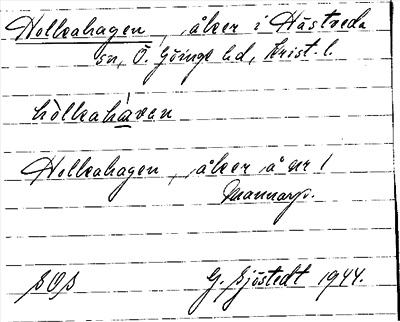 Holkahagen, åker i Hästveda
sn, Ö. Göinge hd, Krist. l.
hòlkahàvan
Holkahagen, åker å nr 1
Mannarp.
SOS G. Sjöstedt 1944.